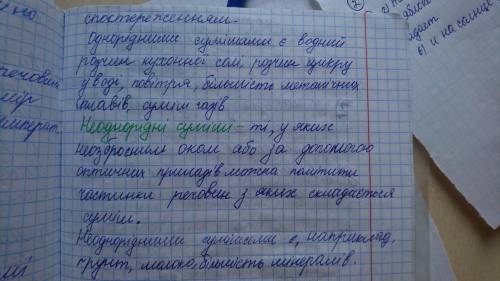 спостереженням.
Однорідними сумішами є водний
розчин кухонної солі, розчин цукру
у воді, повітря, більшість металічних
сплавів, суміш газів
Неоднорідні суміші – ті, у яких
неозброєним оком або за допомогою
оптичних приладів можна помітити
частинки речовин з яких складається
суміш.
Неоднорідними сумішами є, наприклад,
ґрунт, молоко, більшість мінералів.
в) и на солнце